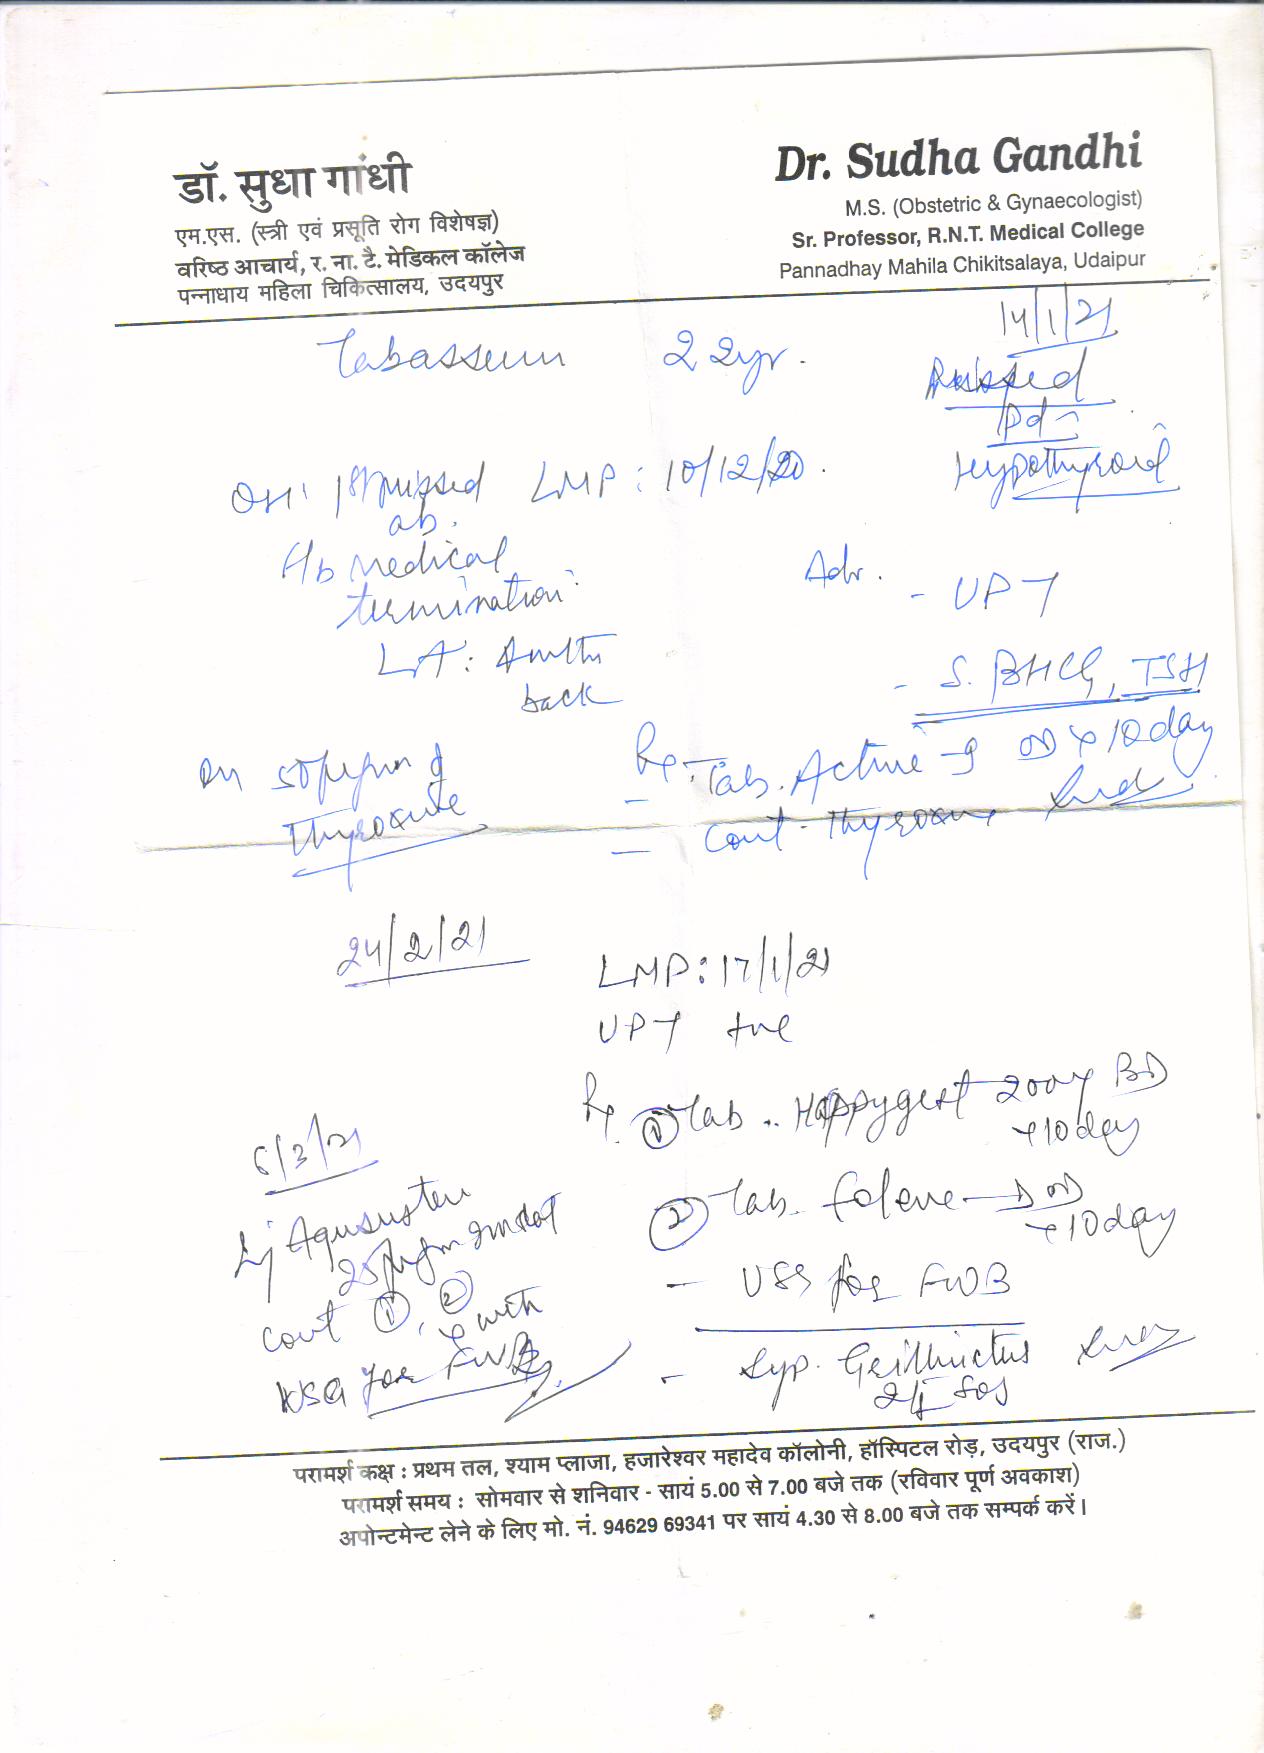 डॉ. सुधा गांधी
एम.एस. (स्त्री एवं प्रसूति रोग विशेषज्ञ)
वरिष्ठ आचार्य, र. ना. टै. मेडिकल कॉलेज
पन्नाधाय महिला चिकित्सालय, उदयपुर
Dr. Sudha Gandhi
M.S. (Obstetric & Gynaecologist)
Sr. Professor, R.N.T. Medical College
Pannadhay Mahila Chikitsalaya, Udaipur
14/1/21
Tabassum 22yr.
Pd
Hypothyroid
OH: 1st missed LMP: 10/12/20.
ab.
H/o Medical
termination
LA:
back
Adv.
- UPT
- S. BHCG, TSH
Rx. Tab. Active-9 OD x 10day
- Cont. Thyroxine
on 50µgm of
Thyroxine
24/2/21
LMP: 17/1/21
UPT +ve
Rx ① Tab. Happygest 200mg BD
x 10day
② Tab. Folene-D OD
x 10day
- USS for FWB
- Syp.
2tsf SOS
6/3/21
Inj Aqususten
25mgm
cont ①, ②
with
USG for FWB
परामर्श कक्ष : प्रथम तल, श्याम प्लाजा, हजारेश्वर महादेव कॉलोनी, हॉस्पिटल रोड़, उदयपुर (राज.)
परामर्श समय : सोमवार से शनिवार - सायं 5.00 से 7.00 बजे तक (रविवार पूर्ण अवकाश)
अपोन्टमेन्ट लेने के लिए मो. नं. 94629 69341 पर सायं 4.30 से 8.00 बजे तक सम्पर्क करें।